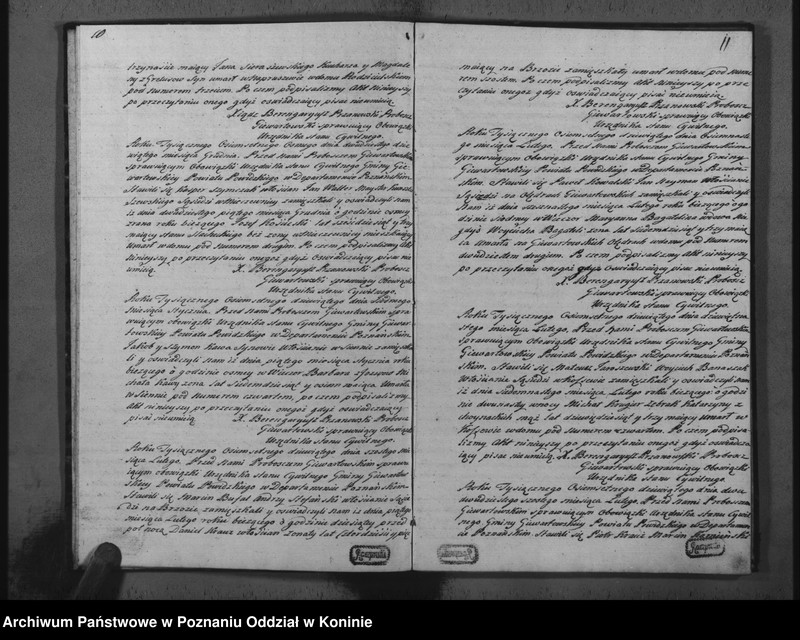 10
trzynaście maiący Jana Siera szewskiego Karbarza y Magdale
umarł w domu Rodzicielskim
pod numerem trzecim. Po czem podpisaliśmy Akt ninieyszy
po przeczytaniu onego gdyż oswiadczaiący pisać nieumieią
Xiądz Berengaryusz Prusnowski Proboszcz
Giewartowski sprawuiący Obowiązki
Urzędnika Stanu Cywilnego.
Roku Tysiącznego Osiemsetnego Osmego dnia dwudziestego dzie
wiątego miesiąca Grudnia. Przed Nami Proboszczem Giewartowskim
sprawuiącym Obowiązki Urzędnika Stanu Cywilnego Gminy Gie
wartowskiey Powiatu Powidzkiego w Departamencie Poznańskim
Stawili się Kasper Szymczak włościan Jan
zamięszkali y oswiadczyli nam
iż dnia dwudziestego piątego miesiąca Grudnia o godzinie osmey
zrana roku bieżącego Jozef lat sześćdziesiąt y trzy
maiący
Umarł w domu pod numerem drugim. Po czem podpisaliśmy Akt
ninieyszy po przeczytaniu onegoż gdyż oswiadczaiący pisać nie
umieią. X. Berengaryusz Prusnowski Proboszcz
Giewartowski sprawuiący Obowiązki
Urzędnika Stanu Cywilnego.
Roku Tysiącznego Osiemsetnego dziewiątego dnia Siodmego
miesiąca Stycznia. Przed Nami Proboszczem Giewartowskim spra
wuiącym obowiązki Urzędnika Stanu Cywilnego Gminy Giewar
towskiey Powiatu Powidzkiego w Departamencie Poznańskim.
Jakob y Szymon Kawa Synowie Włościanie w Sinnie zamięszka
li y oswiadczyli nam iż dnia piątego miesiąca Stycznia roku
bieżącego o godzinie osmey w Wieczor Barbara z
chała Kawy żona lat Siedemdziesiąt y osiem maiąca Umarła
w Sinnie pod Numerem czwartem, po czem podpisaliśmy
Akt ninieyszy po przeczytaniu onegoż gdyż oswiadczaiący
pisać nieumieią. X. Berengaryusz Prusnowski Proboszcz
Giewartowski sprawuiący Obowiązki
Urzędnika Stanu Cywilnego.
Roku Tysiącznego Osiemsetnego dziewiątego dnia szostego mie
siąca Lutego. Przed Nami Proboszczem Giewartowskim sprawu
iącym obowiązki Urzędnika Stanu Cywilnego Gminy Giewartow
skiey Powiatu Powidzkiego w Departamencie Poznańskim
Stawili się Marcin Andrzey Stefański włościanie Sąsie
dzi na Brzozie zamięszkali y oswiadczyli nam iż dnia piątego
miesiąca Lutego roku bieżącego o godzinie dziesiątey przed
połnocą Daniel Krauz włościan żonaty lat czterdzieści y pięć
11
maiący na Brzozie zamięszkały umarł w domu pod nume
rem szostem. Po czem podpisaliśmy Akt ninieyszy po prze
czytaniu onegoż gdyż oswiadczaiący pisać nieumieią.
X. Berengaryusz Prusnowski Proboszcz
Giewartowski sprawuiący Obowiązki
Urzędnika Stanu Cywilnego.
Roku Tysiącznego Osiemsetnego dziewiątego dnia Osiemnaste
go miesiąca Lutego. Przed Nami Proboszczem Giewartowskim
sprawuiącym Obowiązki Urzędnika Stanu Cywilnego Gminy
Giewartowskiey Powiatu Powidzkiego w Departamencie Poznań
skim. Stawili się Paweł Kowalski Jan Neyman Włościanie
Sąsiedzi na Olędrach Giewartowskich zamięszkali y oswiadczyli
Nam iż dnia szesnastego miesiąca Lutego roku bieżącego o go
dzinie siodmey w Wieczor Maryanna
Woyciecha żona lat Siedemdziesiąt y trzy maią
ca Umarła na Giewartowskich Olędrach w domu pod Numerem
dwudziestem drugiem. Po czem podpisaliśmy Akt ninieyszy
po przeczytaniu onegoż gdyż oswiadczaiący pisać nieumieią.
X. Berengaryusz Prusnowski Proboszcz
Giewartowski sprawuiący Obowiązki
Urzędnika Stanu Cywilnego.
Roku Tysiącznego Osiemsetnego dziewiątego dnia dziewiętna
stego miesiąca Lutego. Przed Nami Proboszczem Giewartowskim
sprawuiącym Obowiązki Urzędnika Stanu Cywilnego Gminy
Giewartowskiey Powiatu Powidzkiego w Departamencie Poznań
skim. Stawili się Mateusz Jaroszewski Woyciech Banaszak
Włościanie Sąsiedzi w zamięszkali y oswiadczyli nam
iż dnia siedemnastego miesiąca Lutego roku bieżącego o godzi
nie dwunastey w nocy Michał Krugier Szkolarz Katarzyny z
mąż lat dziewięćdziesiąt y trzy maiący umarł w
w domu pod numerem czwartem. Po czem podpisa
liśmy Akt ninieyszy po przeczytaniu onegoż gdyż oswiadcza
iący pisać nieumieią. X. Berengaryusz Prusnowski Proboszcz
Giewartowski sprawuiący Obowiązki
Urzędnika Stanu Cywilnego.
Roku Tysiącznego Osiemsetnego dziewiątego dnia dwu
dziestego szostego miesiąca Lutego Przed Nami Proboszczem
Giewartowskim sprawuiącym Obowiązki Urzędnika Stanu Cy
wilnego Gminy Giewartowskiey Powiatu Powidzkiego w Departamen
cie Poznańskim Stawili się Piotr Krauz Marcin
Archiwum Państwowe w Poznaniu Oddział w Koninie